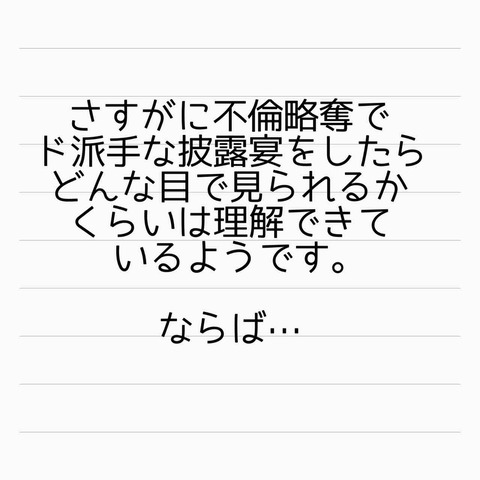 さすがに不倫略奪で
ド派手な披露宴をしたら
どんな目で見られるか
くらいは理解できて
いるようです。
ならば…